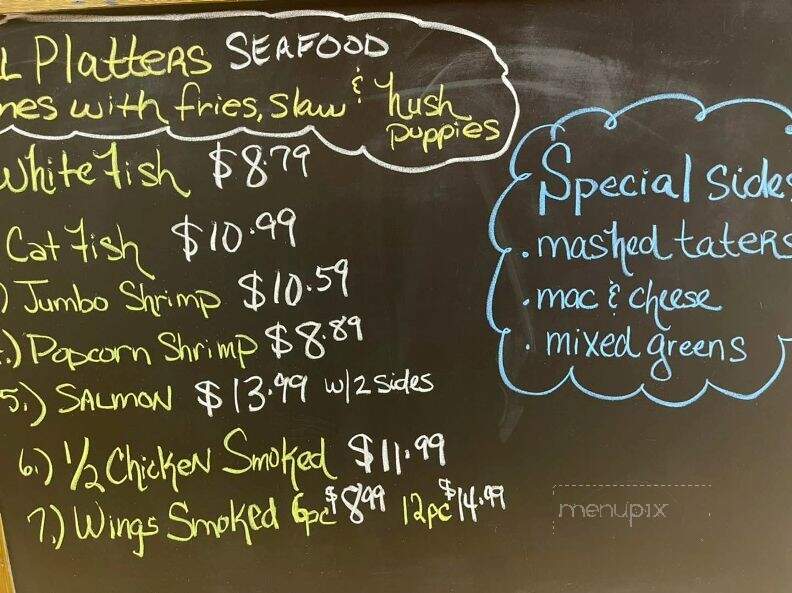 L Platters SEAFOOD
mes with fries, slaw & hush puppies
White Fish $8.79
Cat Fish $10.99
) Jumbo Shrimp $10.59
.) Popcorn Shrimp $8.89
5.) SALMON $13.99 w/2 sides
6.) 1/2 Chicken Smoked $11.99
7.) Wings Smoked 6pc $8.99 12pc $14.99
Special Sides
. mashed taters
. mac & cheese
. mixed greens
menupix